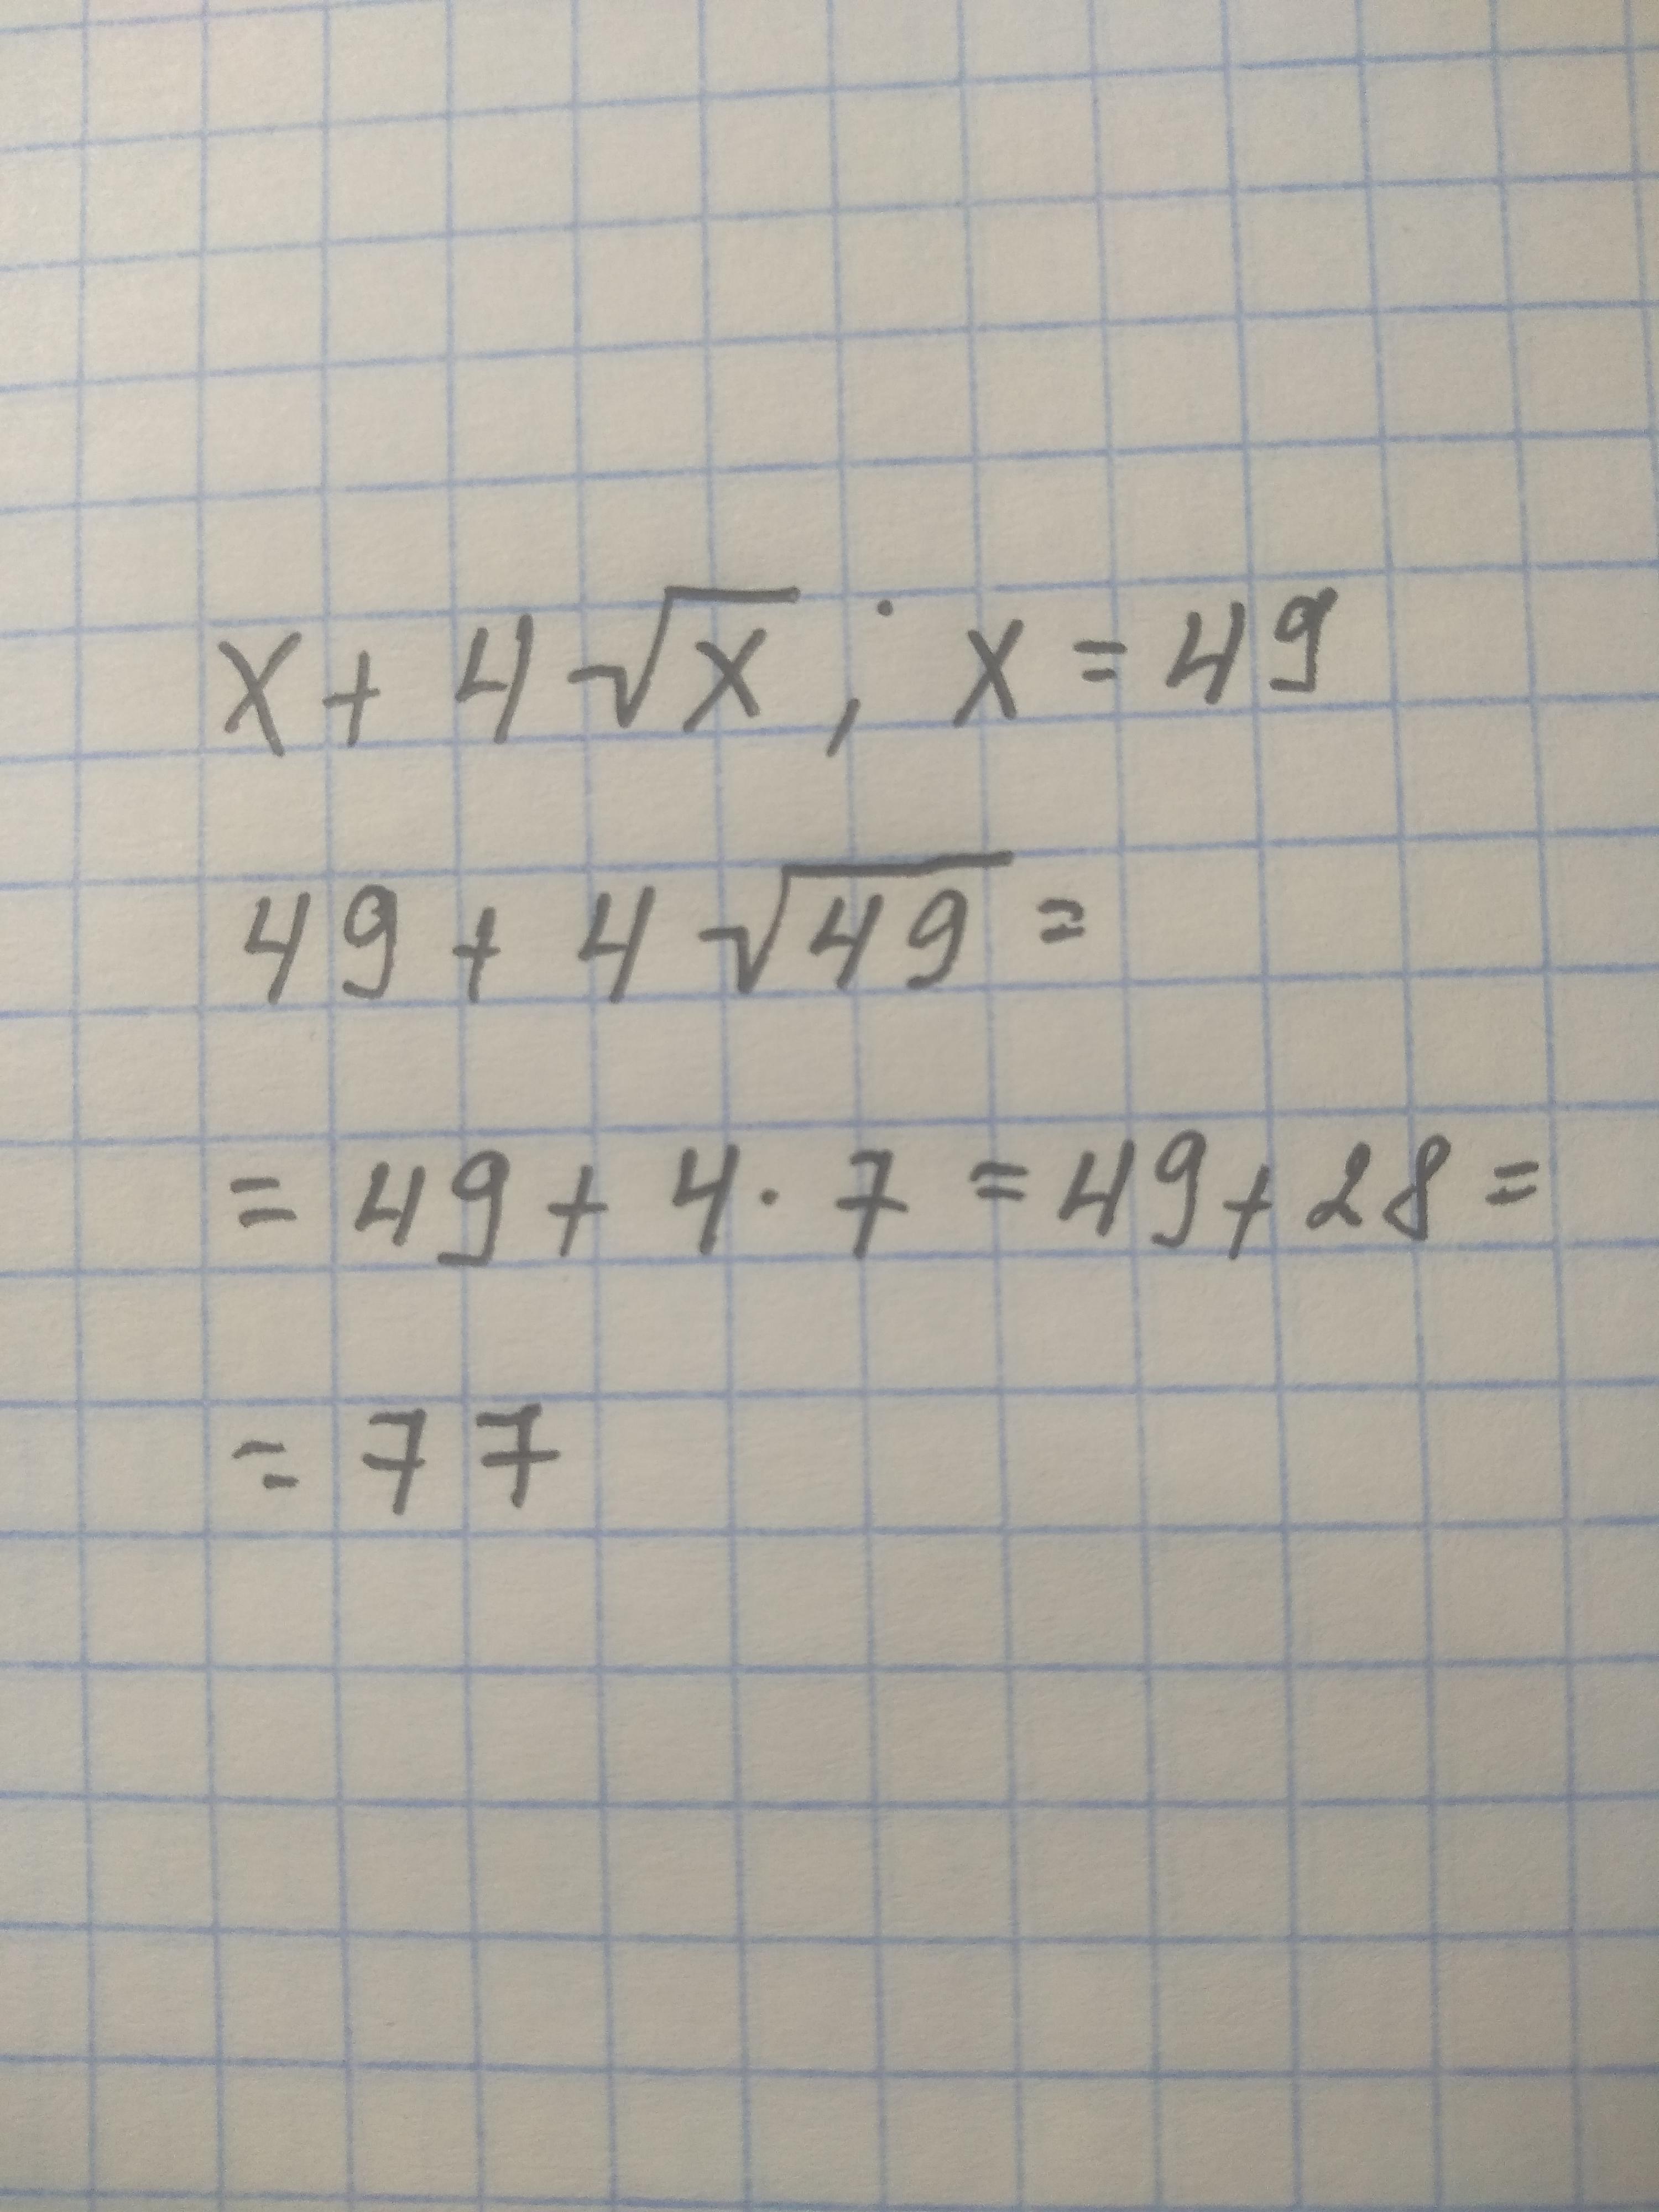 x + 4√x ; x = 49
49 + 4√49 =
= 49 + 4 · 7 = 49 + 28 =
= 77